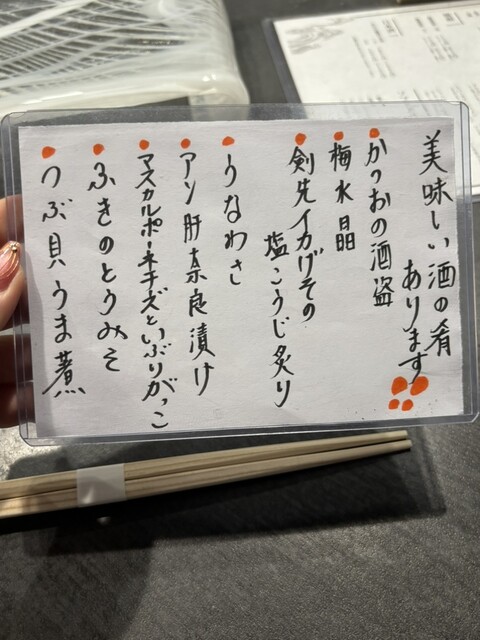 美味しい酒の肴
あります!!
かつおの酒盗
梅水晶
剣先イカげその
塩こうじ炙り
うなわさ
アン肝奈良漬け
マスカルポーネチーズといぶりがっこ
ふきのとうみそ
つぶ貝うま煮